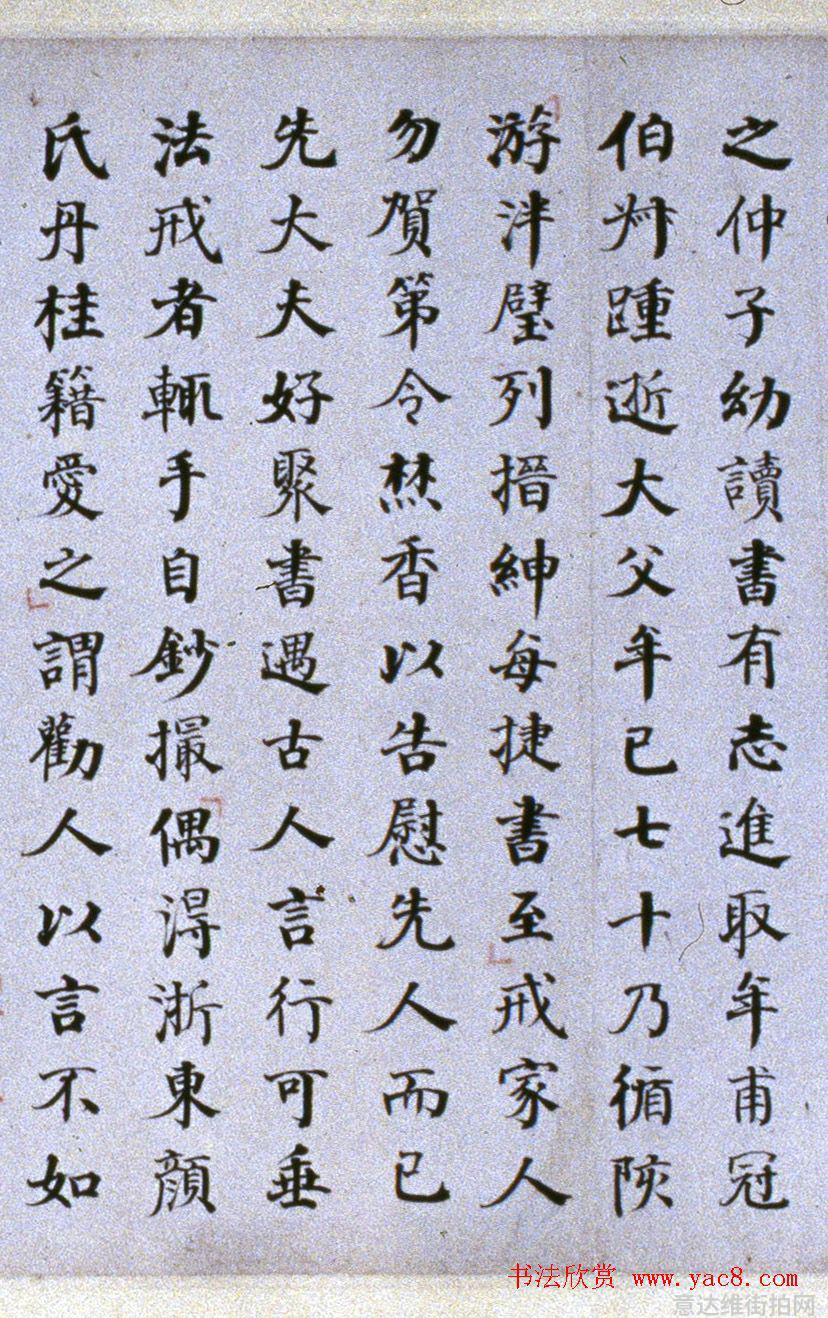 之仲子幼讀書有志進取年甫冠
伯叔踵逝大父年已七十乃循陔
游泮璧列搢紳每捷書至戒家人
勿賀第令焚香以告慰先人而已
先大夫好聚書遇古人言行可垂
法戒者輒手自鈔撮偶得浙東顔
氏丹桂籍愛之謂勸人以言不如
书法欣赏 www.yac8.com
意达维街拍网